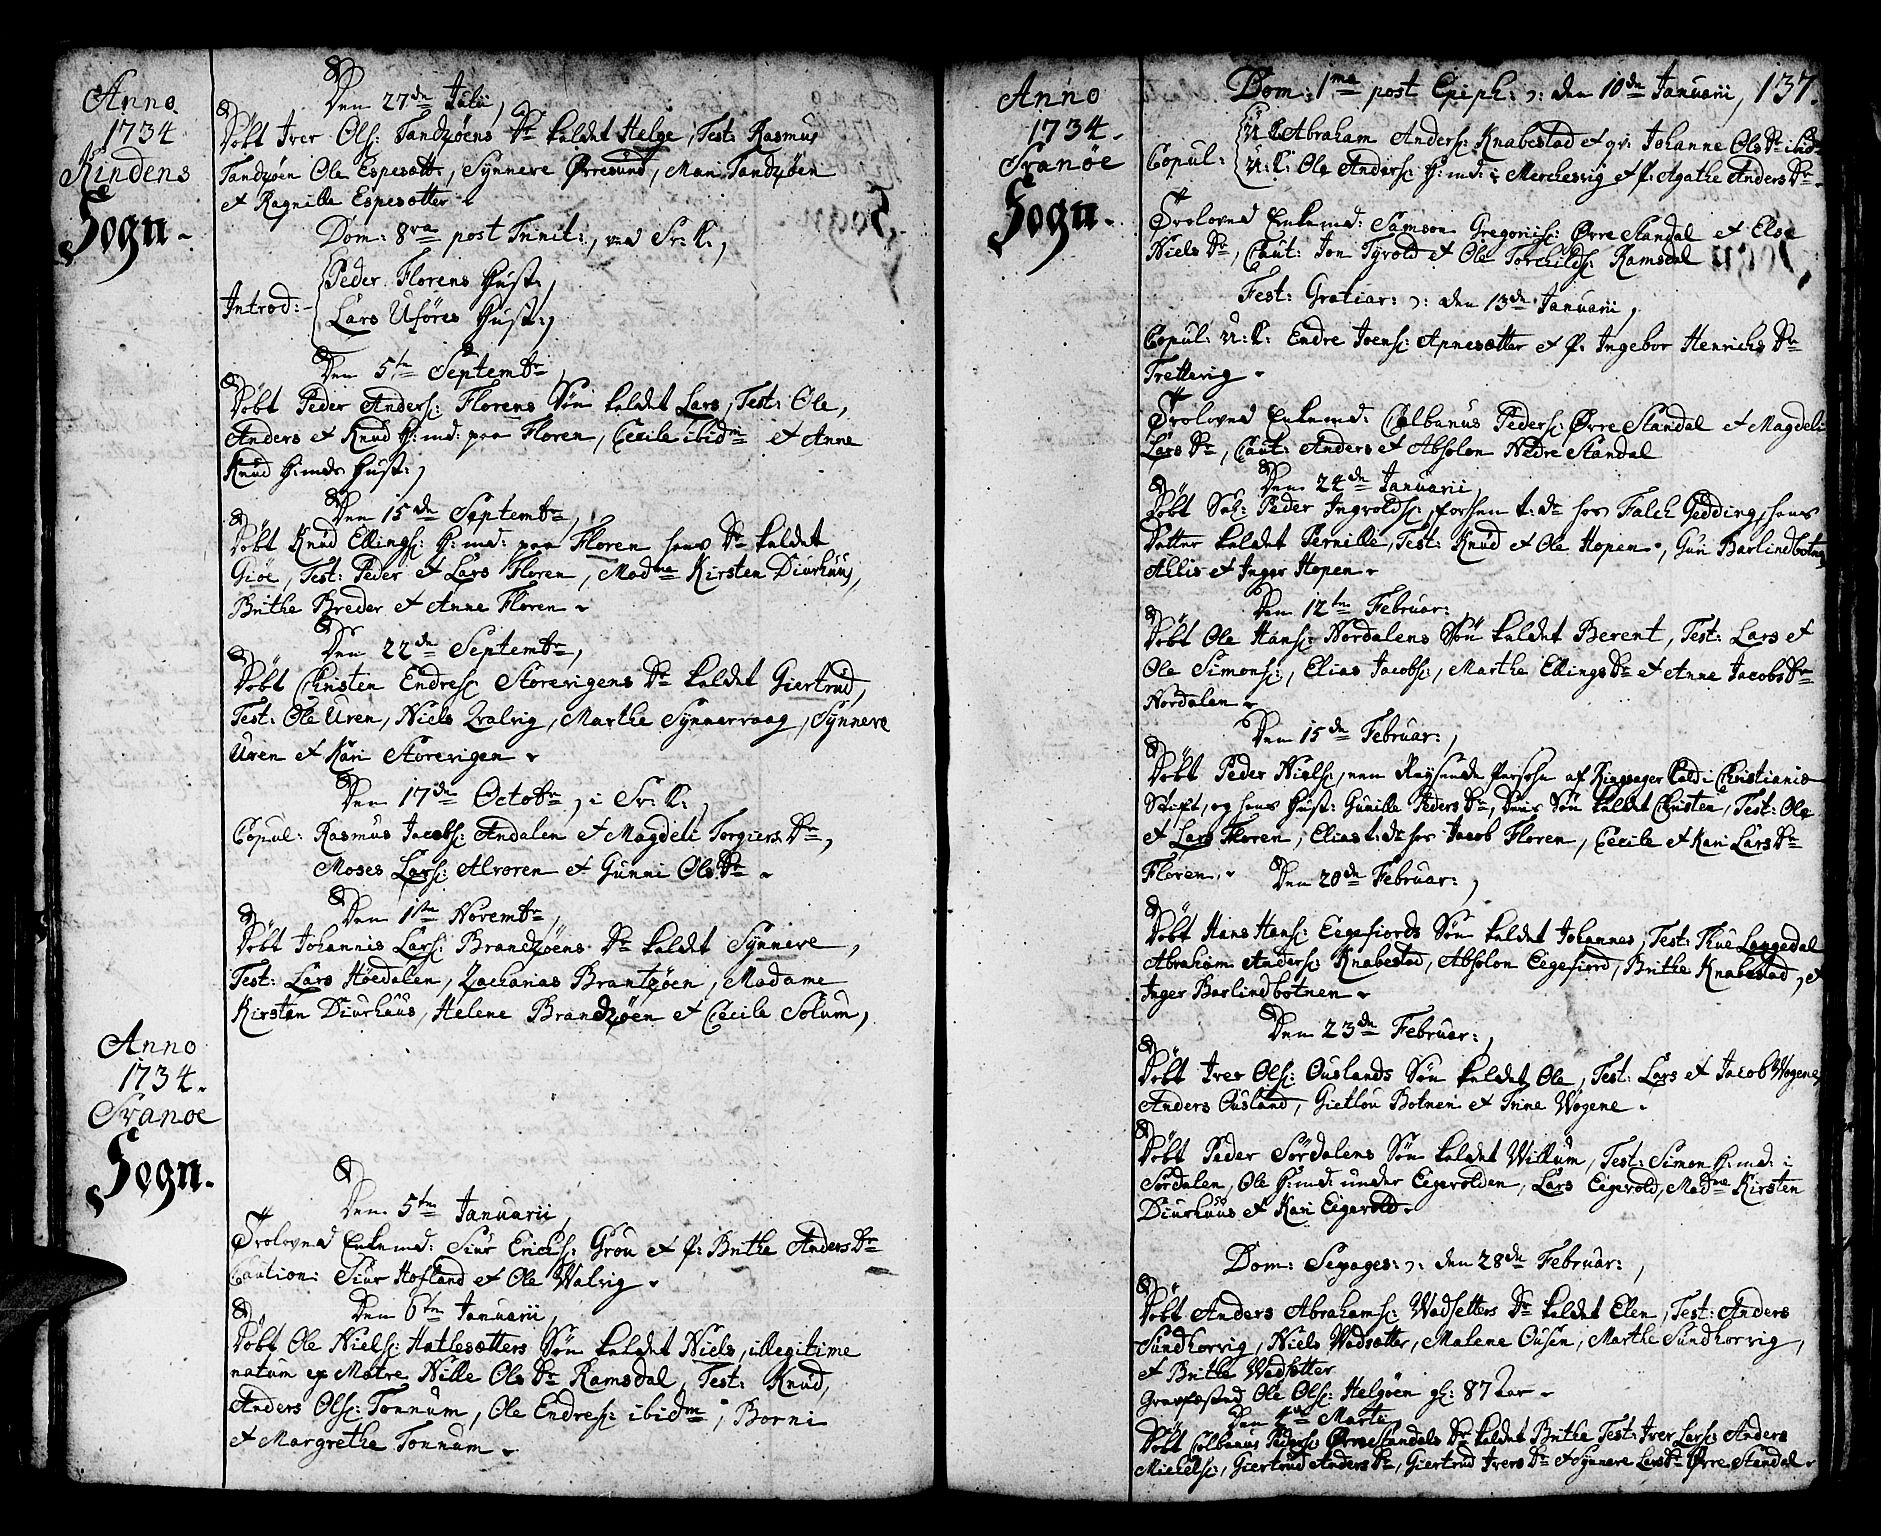 Anno
1734
Kindens
Sogn.
Den 27de Julii,
Döbt Iver Ols: Tandzöens Dr kaldet Helge, Test: Rasmus
Tandzöen Ole Espesætter, Synneve Ørresund, Mari Tandzöen
et Ragnille Espesætter.
Dom: 8va post Trinit:, ved Sv: K:,
Introd:
Peder Florens Hust:,
Lars Uföres Hust:,
Den 5te Septembr,
Döbt Peder Anders: Florens Sön kaldet Lars, Test: Ole,
Anders et Knud H:md: paa Floren, Cecile ibidm et Anne
Knud H:mds Hust:,
Den 15de Septembr,
Döbt Knud Ellings: H:md: paa Floren hans Dr kaldet
Giöe, Test: Peder et Lars Floren, Madme Kirsten Diurhuus,
Brithe Breder et Anne Floren.
Den 22de Septembr,
Döbt Christen Endres: Storevigens Dr kaldet Giertrud,
Test: Ole Uren, Niels Qvalvig, Marthe Synnervaag, Synneve
Uren et Kari Storevigen.
Den 17de Octobr, i Sv: K:,
Copul: Rasmus Jacobs: Andalen et Magdeli Torgiers Dr,
Moses Lars: Alvoren et Gunni Ols Dr.
Den 1ste Novembr,
Döbt Johannis Lars: Brandzöens Dr kaldet Synneve,
Test: Lars Höedalen, Zacharias Brantzöen, Madame
Kirsten Diurhuus, Helene Brandzöen et Cecile Solum,
Anno
1734.
Svanoe
Sogn.
Den 5te Januarii,
Trolovved Enkemd: Siur Erichs: Grou et P: Brithe Anders Dr
Caution: Siur Hofland et Ole Walvig.
Den 6te Januarii,
Döbt Ole Niels: Hatlesætters Sön kaldet Niels, illegitime
natum ex Matre Nille Ols Dr Ramsdal, Test: Knud,
Anders Ols: Tonnum, Ole Endres: ibidm, Borni
et Margrethe Tonnum.
137.
Anno
1734.
Svanöe
Sogn.
Dom: 1ma post Epiph: ɔ: den 10de Januarii,
Copul:
U: K: Abraham Anders: Knabestad et qv: Johanne Ols Dr ibid
U: K: Ole Anders: H:md: i Merchesvig et P: Agathe Anders Dr.
Trolovved Enkemd: Samson Gregoris: Ørre Standal et Else
Niels Dr, Caut: Jon Tyvold et Ole Torchilds: Ramsdal
Fest: Gratiar: ɔ: den 13de Januarii,
Copul: U: K: Endre Joens: Apnesætter et P: Ingebor Henrichs Dr
Trettevig.
Trolovved Enkemd: Colbanus Peders: Ørre Standal et Magdeli
Lars Dr, Caut: Anders et Absolon Nedre Standal
Den 24de Januarii,
Döbt Sal: Peder Ingvolds:, forhen t:dr hos Falch Gedding, hans
Datter kaldet Pernille, Test: Knud et Ole Hopen, Gun Barlindbotnen
Ahlis et Inger Hopen.
Den 12te Februar:,
Döbt Ole Hans: Nordalens Sön kaldet Berent, Test: Lars et
Ole Simons:, Elias Jacobs:, Marthe Ellings Dr et Anne Jacobs Dr
Nordalen.
Den 15de Februar:,
Döbt Peder Niels:, een Reysende Person af Ringsager Kald i Christiania
Stift, og hans Hust: Gunille Peders Dr, deris Sön kaldet Christen, Test: Ole
et Lars Floren, Elias t:dr hos Jacob Floren, Cecile et Kari Lars Dr
Floren.
Den 20de Februar:,
Döbt Hans Hans: Eegefiords Sön kaldet Johannes, Test: Thue Langedal
Abraham Anders: Knabestad, Absolon Eegefiord, Brithe Knabestad, et
Inger Barlindbotnen.
Den 23de Februar:,
Döbt Iver Ols: Ouslands Sön kaldet Ole, Test: Lars et Jacob Wogene,
Anders Ousland, Gietlou Botnen et Trine Wogene.
Döbt Peder Sördalens Sön kaldet Willum, Test: Simon H:md: i
Sördalen, Ole H:md: under Eegevolden, Lars Eigevold, Madme Kirsten
Diurhuus et Kari Eigevold.
Dom: Sexages: ɔ: den 28de Februar:,
Döbt Anders Abrahams: Wadsetters Dr kaldet Elen, Test: Anders
Sundhorvig, Niels Wadsætter, Malene Ousen, Marthe Sundhorvig,
et Brithe Wadsætter
Graffæsted Ole Ols: Helgöen gl: 87 Aar.
Den Martii
Döbt Colbanus Peders: Ørre Standals Dr kaldet Brithe Test: Iver Lars: Anders
Michels:, Giertrud Anders Dr, Giertrud Ivers Dr et Synneve Lars Dr Ørre Standal.